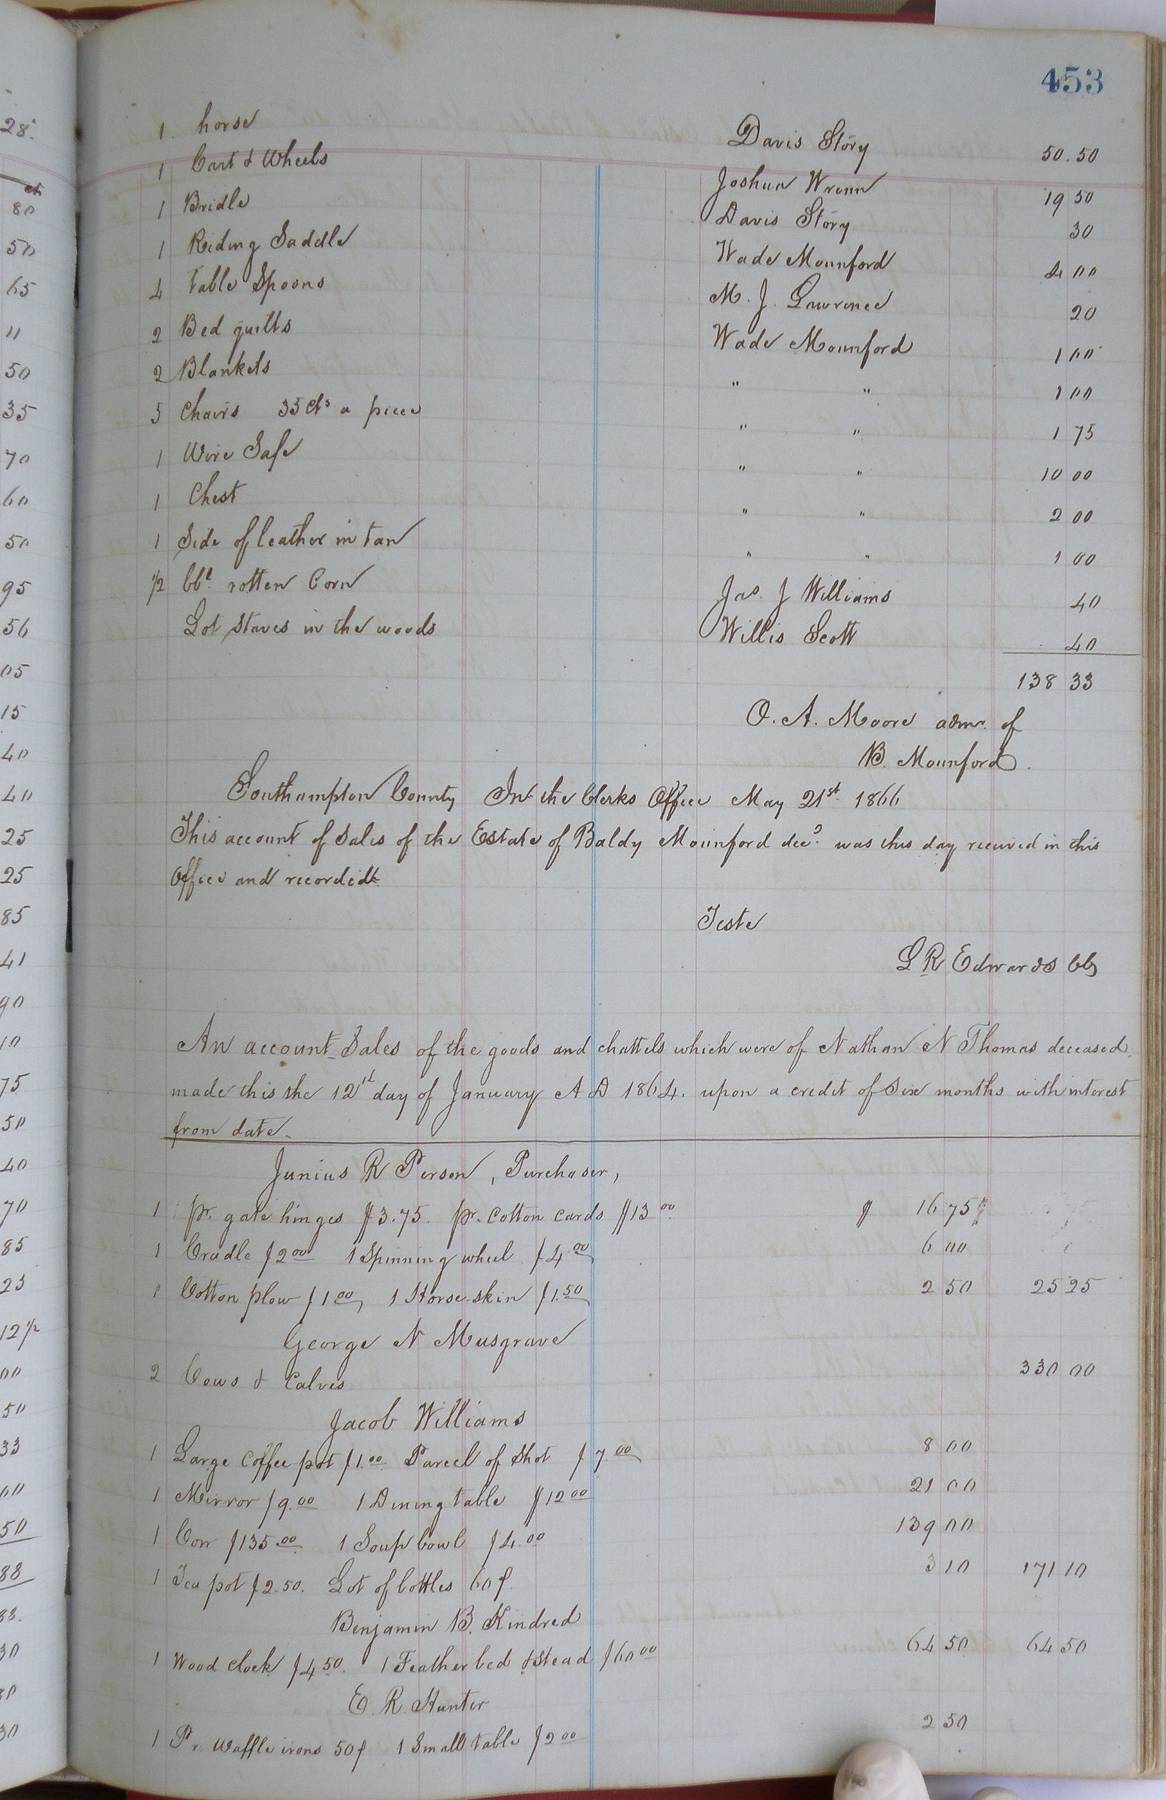 453
1 horse Davis Story 50.50
1 Cart & Wheels Joshua Wrenn 19 50
1 Bridle Davis Story 30
1 Riding Saddle Wade Mounford 4 00
4 Table Spoons M. J. Lawrence 20
2 Bed quilts Wade Mounford 1 00
2 Blankets " " 1 00
5 Chairs 35 cts a piece " " 1 75
1 Wire Safe " " 10 00
1 Chest " " 2 00
1 Side of leather in tan " " 1 00
1/2 bbl rotten Corn Jas. J Williams 40
Lot Staves in the woods Willis Scott 40
138 33
O. A. Moore admr. of
B. Mounford.
Southampton County In the Clerks Office May 21st 1866
This account of Sales of the Estate of Baldy Mounford decd. was this day received in this
Office and recorded
Teste
L R Edwards CC
An account Sales of the goods and chattels which were of Nathan N Thomas deceased
made this the 12st day of January A D 1864. upon a credit of Six months with interest
from date.
Junius R Person, Purchaser,
1 pr. gate hinges $3.75. pr. Cotton cards $13 00 $ 16 75
1 Cradle $2 00 1 Spinning wheel $4.00 6 00
1 Cotton plow $1 00, 1 Horse skin $1.50 2 50 25 25
George N Musgrave
2 Cows & Calves 330 00
Jacob Williams
1 Large Coffee pot $1.00 Parcel of Shot $7.00 8 00
1 Mirror $9.00 1 Dining table $12 00 21 00
1 Cow $135.00 1 Soup bowl $4.00 139 00
1 Tea pot $2.50. Lot of bottles 60¢. 3 10 171 10
Benjamin B. Kindred
1 Wood clock $4 50. 1 Feather bed & Stead $60 00 64 50 64 50
E. R. Hunter
1 Pr. Waffle irons 50¢ 1 Small table $2 00 2 50